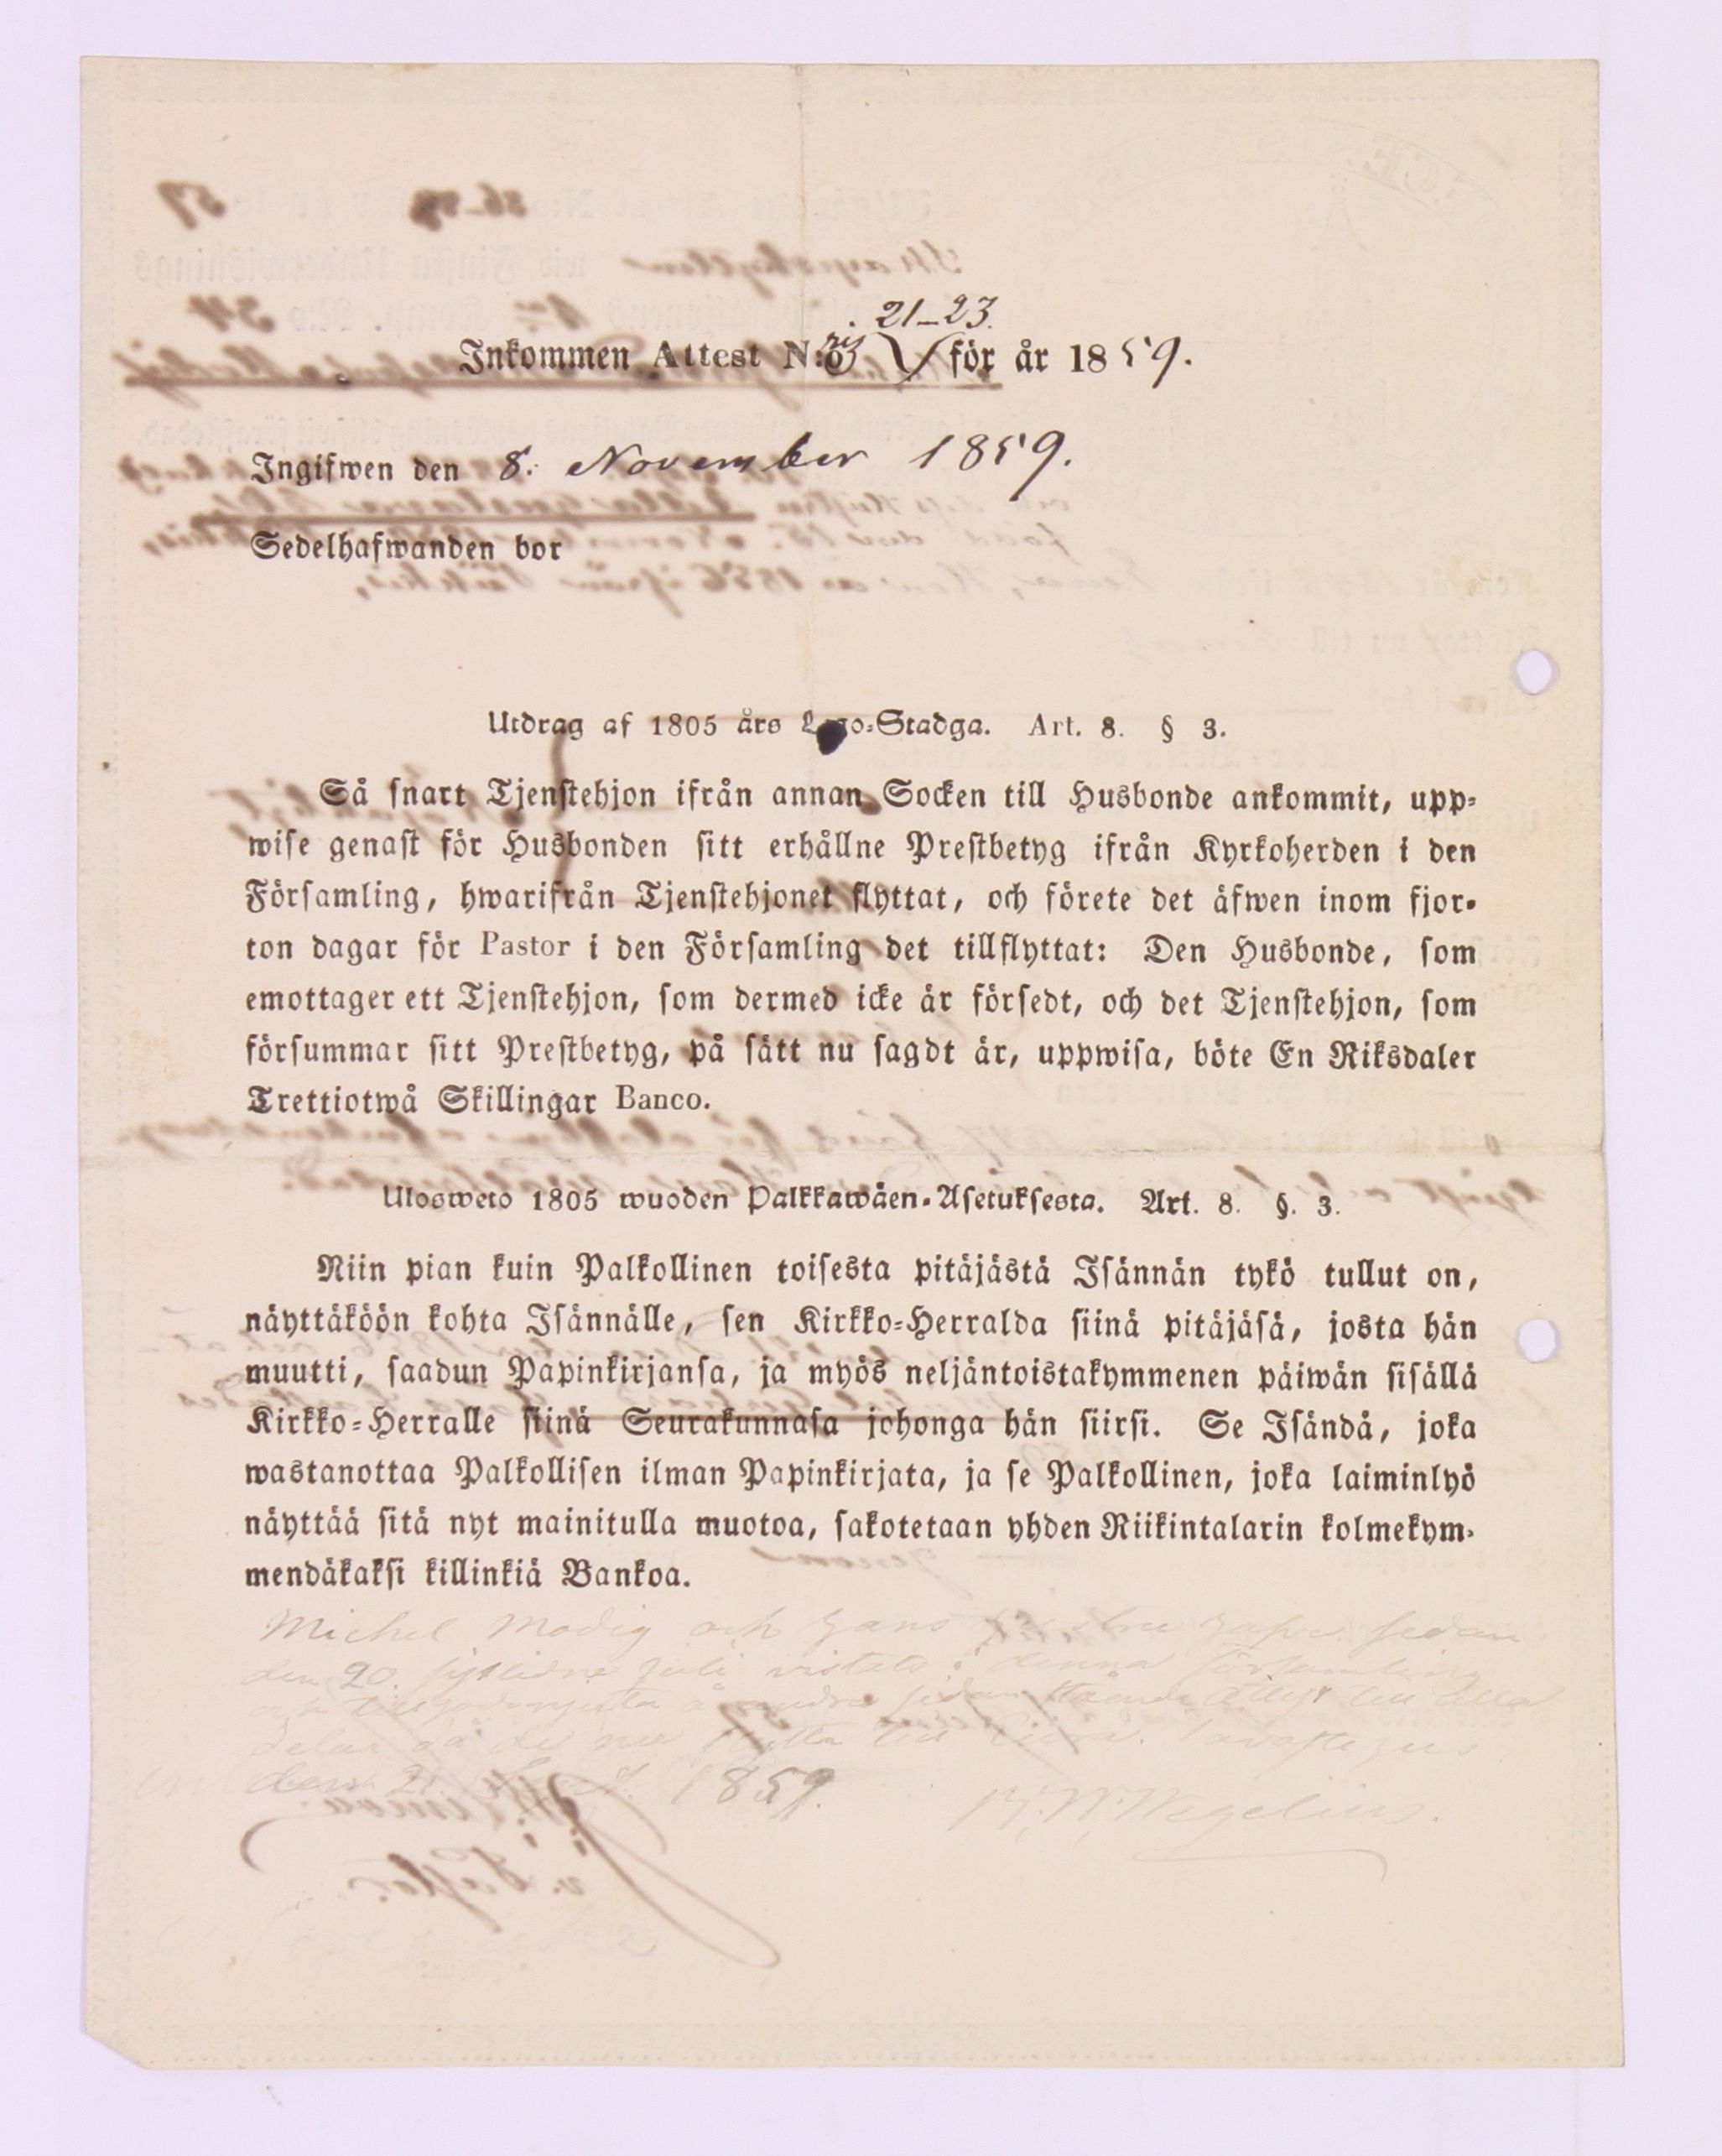 21-23.
Inkommen Attest N:o för år 1859.
Ingifwen den 8. November 1859.
Sedelhafwanden bor
Utdrag af 1805 års Lego-Stadga. Art. 8. § 3.
Så snart Tjenstehjon ifrån annan Socken till Husbonde ankommit, upp-
wise genast för Husbonden sitt erhållne Prestbetyg ifrån Kyrkoherden i den
Församling, hwarifrån Tjenstehjonet flyttat, och förete det äfwen inom fjor-
ton dagar för Pastor i den Församling det tillflyttat: Den Husbonde, som
emottager ett Tjenstehjon, som dermed icke är försedt, och det Tjenstehjon, som
försummar sitt Prestbetyg, på sätt nu sagdt är, uppwisa, böte En Riksdaler
Trettiotwå Skillingar Banco.
Ulosweto 1805 wuoden Palkkawäen-Asetuksesta. Art. 8. §. 3.
Niin pian kuin Palkollinen toisesta pitäjästä Isännän tykö tullut on,
näyttäköön kohta Isännälle, sen Kirkko-Herralda siinä pitäjäsä, josta hän
muutti, saadun Papinkirjansa, ja myös neljäntoistakymmenen päiwän sisällä
Kirkko-Herralle siinä Seurakunnasa johonga hän siirsi. Se Isändä, joka
wastanottaa Palkollisen ilman Papinkirjata, ja se Palkollinen, joka laiminlyö
näyttää sitä nyt mainitulla muotoa, sakotetaan yhden Riikintalarin kolmekym-
mendäkaksi killinkiä Bankoa.
Michel Modig och hans sedan
den 20. sistlidne Juli vistats i denna Församling
till alla
delar då de nu till
den 21. 1859. Wegelius.